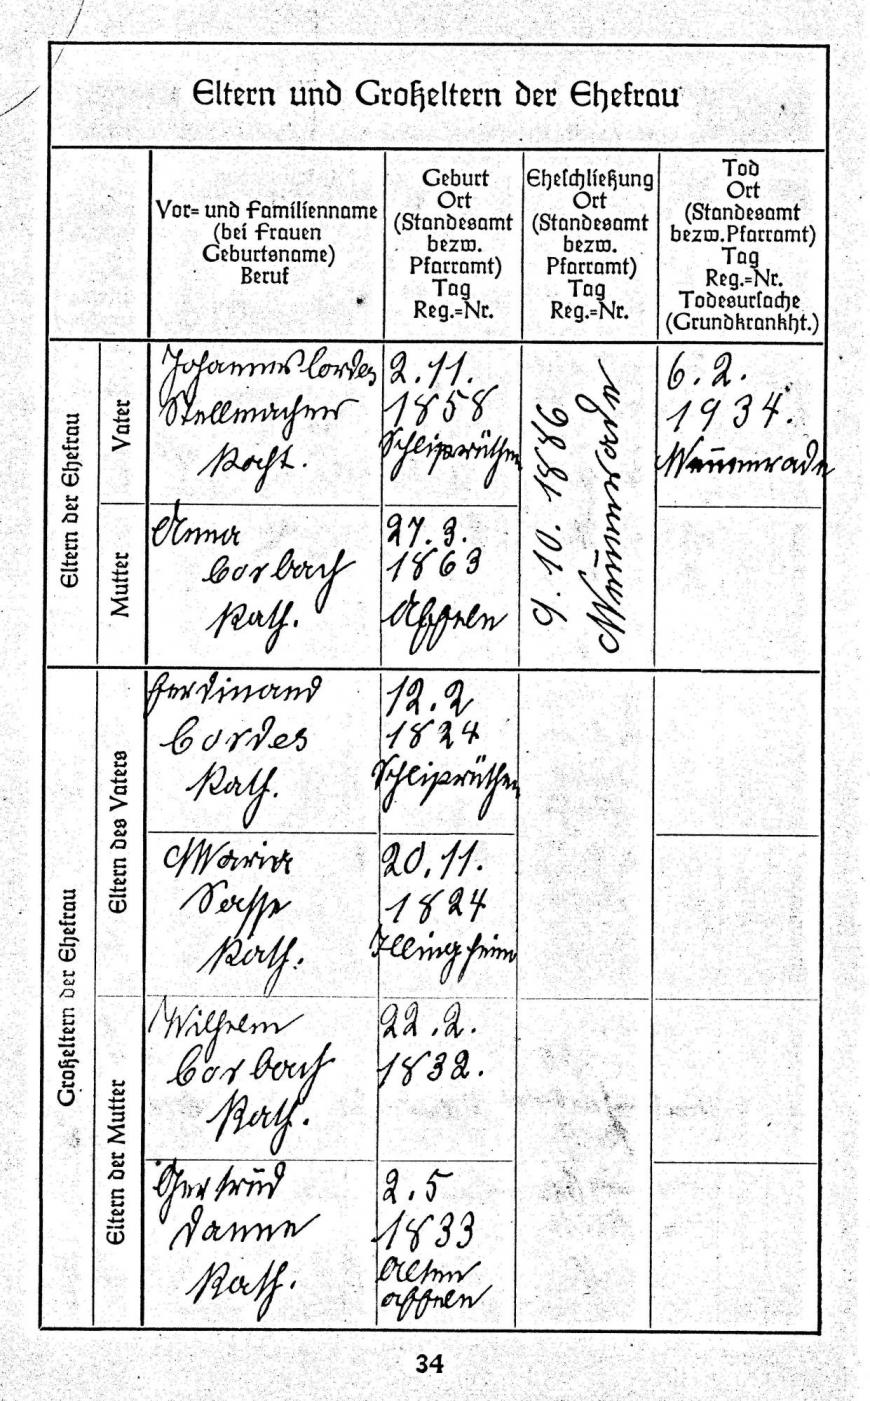 Eltern und Großeltern der Ehefrau
Vor- und Familienname
(bei Frauen
Geburtsname)
Beruf
Geburt
Ort
(Standesamt
bezw.
Pfarramt)
Tag
Reg.-Nr.
Eheschließung
Ort
(Standesamt
bezw.
Pfarramt)
Tag
Reg.-Nr.
Tod
Ort
(Standesamt
bezw. Pfarramt)
Tag
Reg.-Nr.
Todesursache
(Grundkrankht.)
Eltern der Ehefrau
Vater
Johannes Cordes
Stellmacher
Kath.
2.11.
1858
Schliprüthen
9.10.1886
Neuenrade
6.2.
1934.
Neuenrade
Mutter
Anna
Corbach
Kath.
27.3.
1863
Affeln
Großeltern der Ehefrau
Eltern des Vaters
Ferdinand
Cordes
Kath.
12.2
1824
Schliprüthen
Maria
Sasse
Kath.
20.11.
1824
Illingheim
Eltern der Mutter
Wilhelm
Corbach
Kath.
22.2.
1832.
Gertrud
Danne
Kath.
2.5
1833
Alten
affeln
34